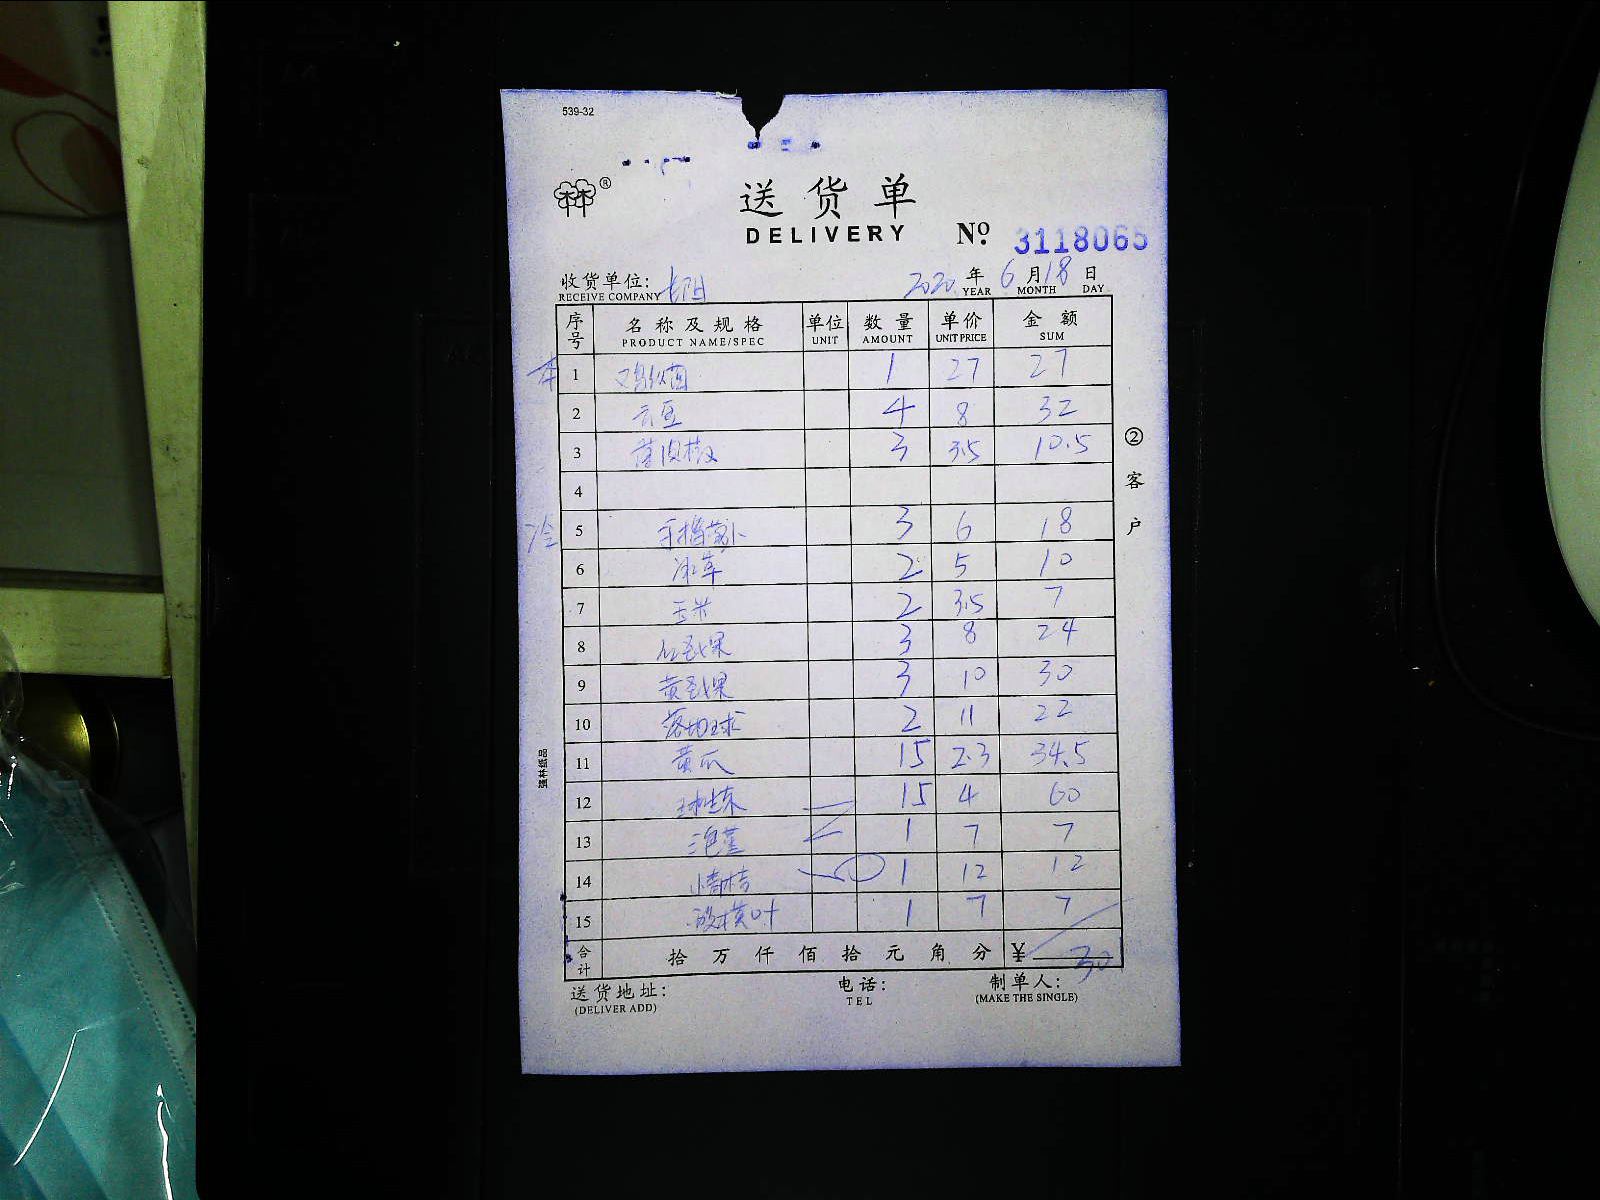 539-32
®
送货单
DELIVERY No. 3118065
收货单位: 2020年6月18日
RECEIVE COMPANY YEAR MONTH DAY
序号 名称及规格 单位 数量 单价 金额
PRODUCT NAME/SPEC UNIT AMOUNT UNIT PRICE SUM
1 鸡纵菌 1 27 27
2 云豆 4 8 32
3 3 3.5 10.5
4
冷 5 手指萝卜 3 6 18
6 冰草 2 5 10
7 玉米 2 3.5 7
8 红圣女果 3 8 24
9 黄圣女果 3 10 30
10 2 11 22
11 黄瓜 15 2.3 34.5
12 球生菜 15 4 60
13 1 7 7
14 小青桔 1 12 12
15 1 7 7
合计 拾万仟佰拾元角分 ¥ 30
送货地址: 电话: 制单人:
(DELIVER ADD) TEL (MAKE THE SINGLE)
②客户
强林纸品